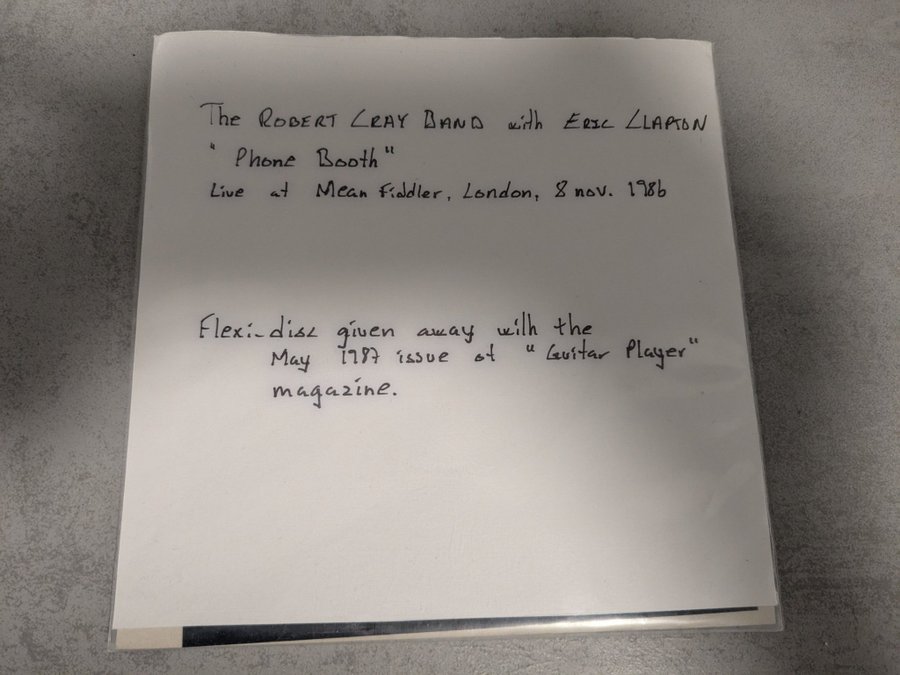 The ROBERT CRAY BAND with ERIC CLAPTON
"Phone Booth"
Live at Mean Fiddler, London, 8 nov. 1986
Flexi-disc given away with the
May 1987 issue of "Guitar Player"
magazine.